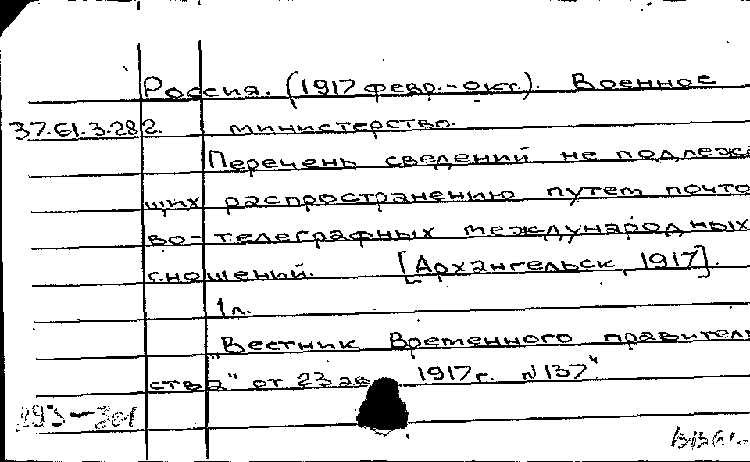 Россия. (1917 февр.-окт.). Военное
37.61.3.282. министерство.
Перечень сведений не подлежа
щих распространению путем почто
во-телеграфных международных
сношений. [Архангельск, 1917].
1л.
"Вестник Временного правитель
ства" от 23 ав 1917г. №137"
293-301